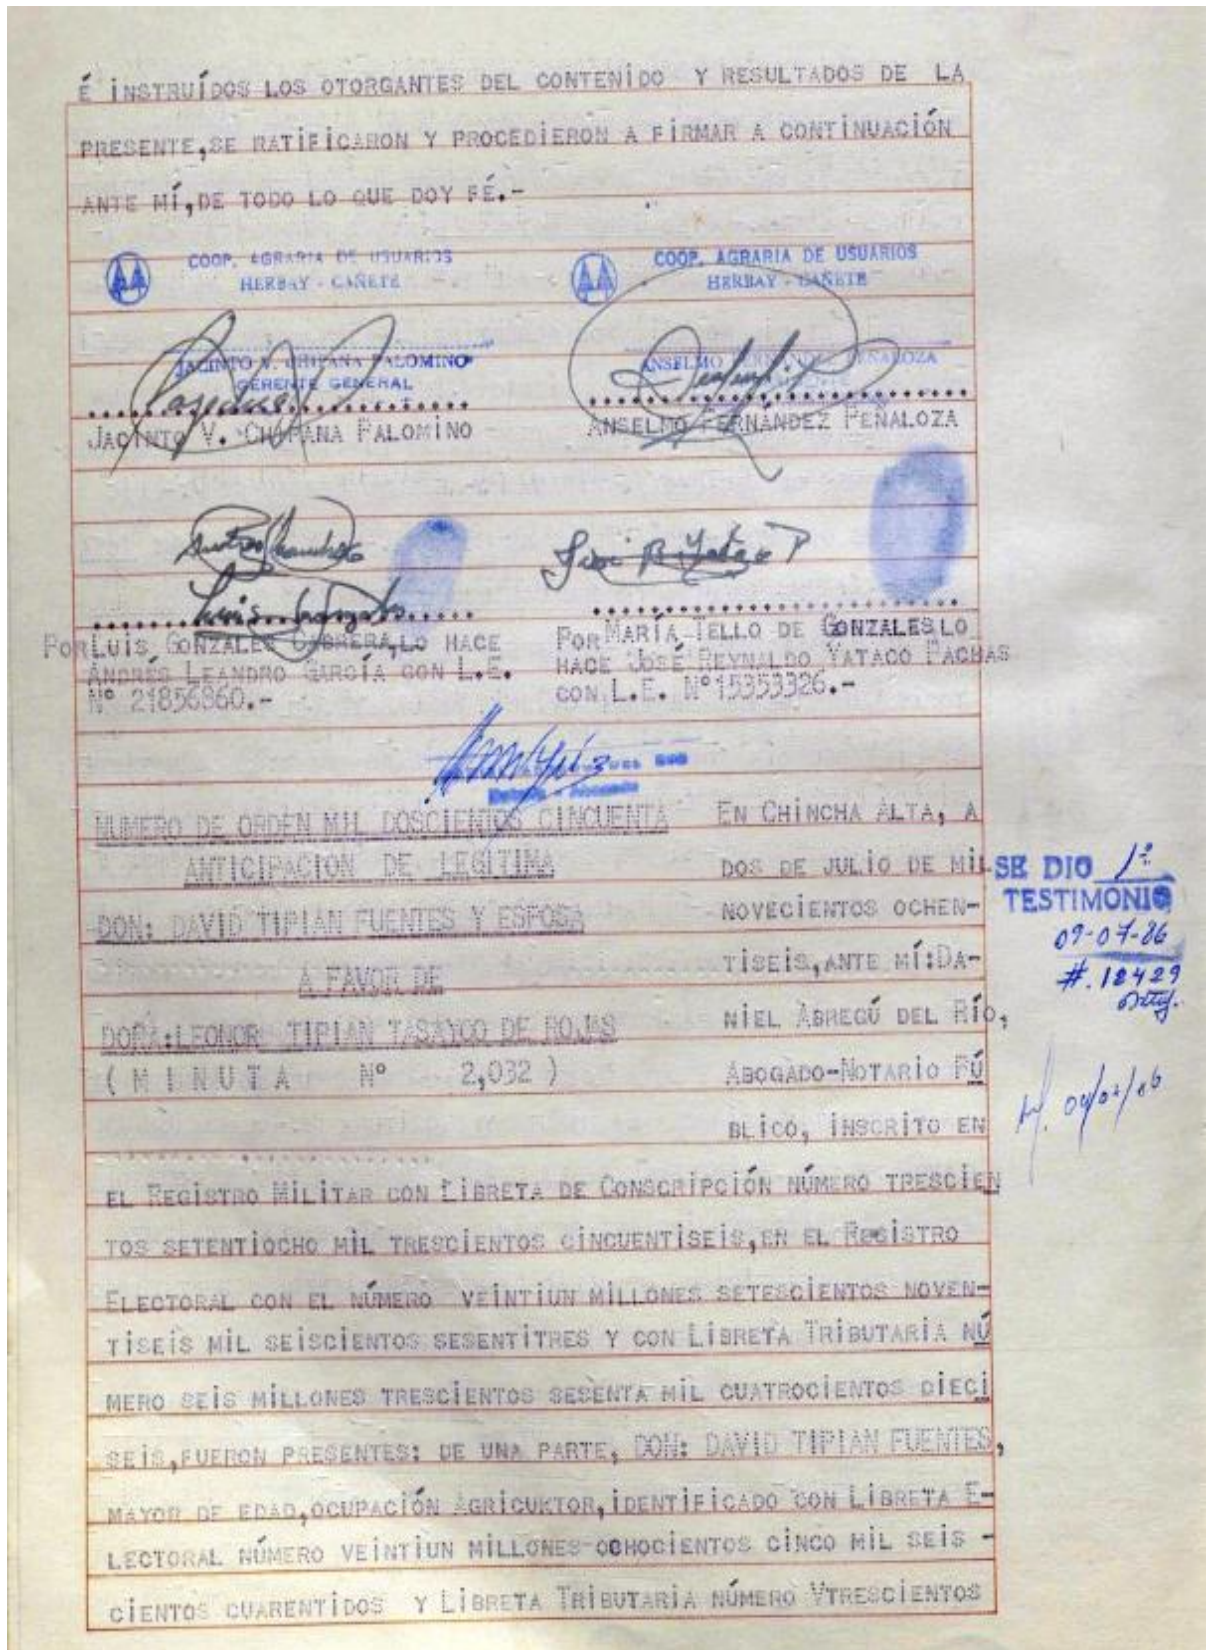 É INSTRUÍDOS LOS OTORGANTES DEL CONTENIDO Y RESULTADOS DE LA
PRESENTE, SE RATIFICARON Y PROCEDIERON A FIRMAR A CONTINUACIÓN
ANTE MÍ, DE TODO LO QUE DOY FÉ.-
COOP. AGRARIA DE USUARIOS
HERBAY - CAÑETE
COOP. AGRARIA DE USUARIOS
HERBAY - CAÑETE
JACINTO V. CHIPANA PALOMINO
GERENTE GENERAL
ANSELMO FERNANDEZ PEÑALOZA
JACINTO V. CHIPANA PALOMINO
ANSELMO FERNÁNDEZ PEÑALOZA
José R Yataco P
Luis Gonzales
POR LUIS GONZALES CABRERA, LO HACE
ANDRÉS LEANDRO GARCÍA CON L.E.
Nº 21856860.-
POR MARÍA TELLO DE GONZALES LO
HACE JOSÉ REYNALDO YATACO PACHAS
CON L.E. Nº 15353326.-
NUMERO DE ORDEN MIL DOSCIENTOS CINCUENTA
ANTICIPACION DE LEGÍTIMA
DON: DAVID TIPIAN FUENTES Y ESPOSA
A FAVOR DE
DOÑA: LEONOR TIPIAN TASAYCO DE ROJAS
( M I N U T A Nº 2,032 )
EN CHINCHA ALTA, A
DOS DE JULIO DE MIL
NOVECIENTOS OCHEN-
TISEIS, ANTE MÍ: DA-
NIEL ABREGÚ DEL RÍO,
ABOGADO-NOTARIO PÚ
BLICO, INSCRITO EN
SE DIO 1º
TESTIMONIO
09-07-86
#. 12429
EL REGISTRO MILITAR CON LIBRETA DE CONSCRIPCIÓN NÚMERO TRESCIEN
TOS SETENTIOCHO MIL TRESCIENTOS CINCUENTISEIS, EN EL REGISTRO
ELECTORAL CON EL NÚMERO VEINTIUN MILLONES SETESCIENTOS NOVEN-
TISEIS MIL SEISCIENTOS SESENTITRES Y CON LIBRETA TRIBUTARIA NÚ
MERO SEIS MILLONES TRESCIENTOS SESENTA MIL CUATROCIENTOS DIECI
SEIS, FUERON PRESENTES: DE UNA PARTE, DON: DAVID TIPIAN FUENTES,
MAYOR DE EDAD, OCUPACIÓN AGRICUKTOR, IDENTIFICADO CON LIBRETA E-
LECTORAL NÚMERO VEINTIUN MILLONES OCHOCIENTOS CINCO MIL SEIS -
CIENTOS CUARENTIDOS Y LIBRETA TRIBUTARIA NÚMERO VTRESCIENTOS